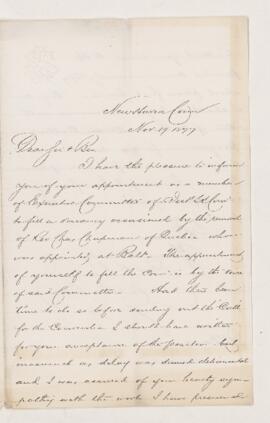 New Haven Conn
Nov 19 1877
Dear Sir & Bro
I have the pleasure to inform
you of your appointment as a member
of Executive Committee of
to fill a vacancy occasioned by the removal
of Rev Chas Chapman of Quebec who
was appointed at Balt. The appointment
of yourself to fill the is by the vote
of said Committee. Had there been
time to do so before sending out the Call
for the Convention I should have waited
for your acceptance of the position but
inasmuch as delay was deemed detrimental
and I was assured of your hearty sym-
pathy with the work I have presumed